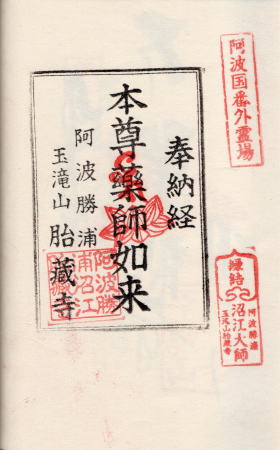 阿波国番外霊場
奉納経
本尊薬師如来
阿波勝浦
玉滝山 胎蔵寺
阿波勝
浦沼江
縁結
沼江大師
阿波勝浦
玉滝山胎蔵寺